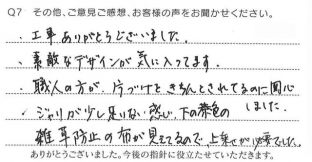 Q7 その他、ご意見ご感想、お客様の声をお聞かせください。
・工事ありがとうございました。
・素敵なデザインが気に入ってます。
・職人の方が、片づけをきちんとされてるのに関心しました。
・ジャリが少し足りない感じ、下の茶色の
雑草防止の布が見えてるので、上乗せが必要でした。
ありがとうございました。今後の指針に役立たせていただきます。